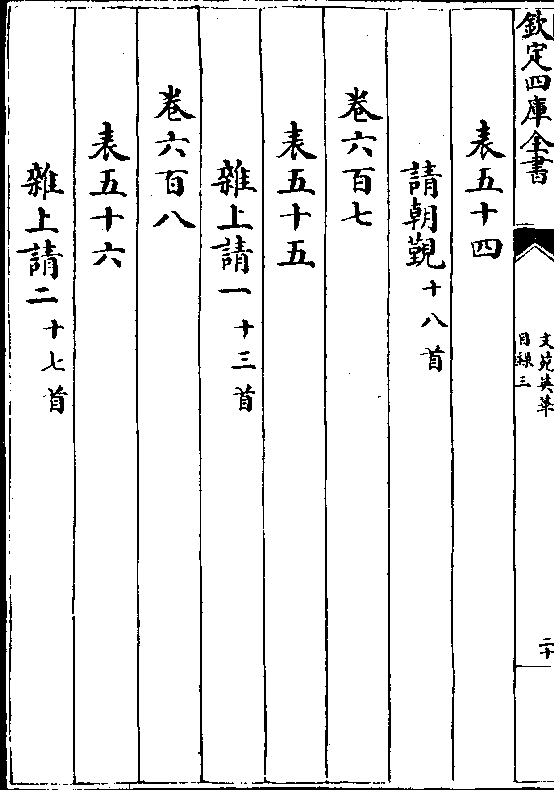 欽定四庫全書
文苑英華
目録三
二十
表五十四
請朝覲十八首
卷六百七
表五十五
雜上請一十三首
卷六百八
表五十六
雜上請二十七首